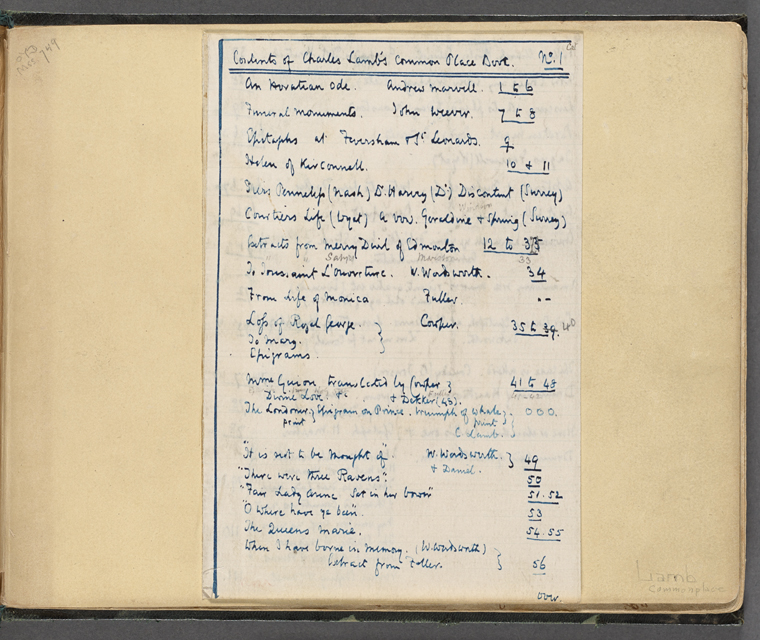 Contents of Charles Lamb's Common Place Book. No. 1
An Horatian Ode. Andrew Marvell. 1 to 6
Funeral Monuments. John Weever. 7 to 8
Epitaphs at Feversham & St Leonards. 9
Helen of Kirconnell. 10 & 11
Piers Penneless (Nash) Dr. Harvey (Do) Discontent (Surrey)
Courtiers Life (Wyat) a vow. Geraldine & Spring (Surrey)
Extracts from Merry Devil of Edmonton 12 to 33
33
To Toussaint L'ouverture. W. Wordsworth. 34
From Life of Monica Fuller. "
Loss of Royal George. } Cowper. 35 to 39. 40
To Mary. }
Epigrams.
Mme Guion, translated by Cowper } 41 to 48
Divine Love &c & Dekker (43).
The Londoner, Epigram on Prince. Triumph of Whale, 000.
print print }
C. Lamb. }
"It is not to be thought of" W. Wordsworth. } 49
& Daniel.
"There were three Ravens". 50
"Fair Lady Anne Sat in her bower" 51.52
"O where have ye been". 53
The Queens Marie. 54.55
When I have borne in memory. (W. Wordsworth) }
Extract from Fuller. } 56
over.
Lamb
Commonplace